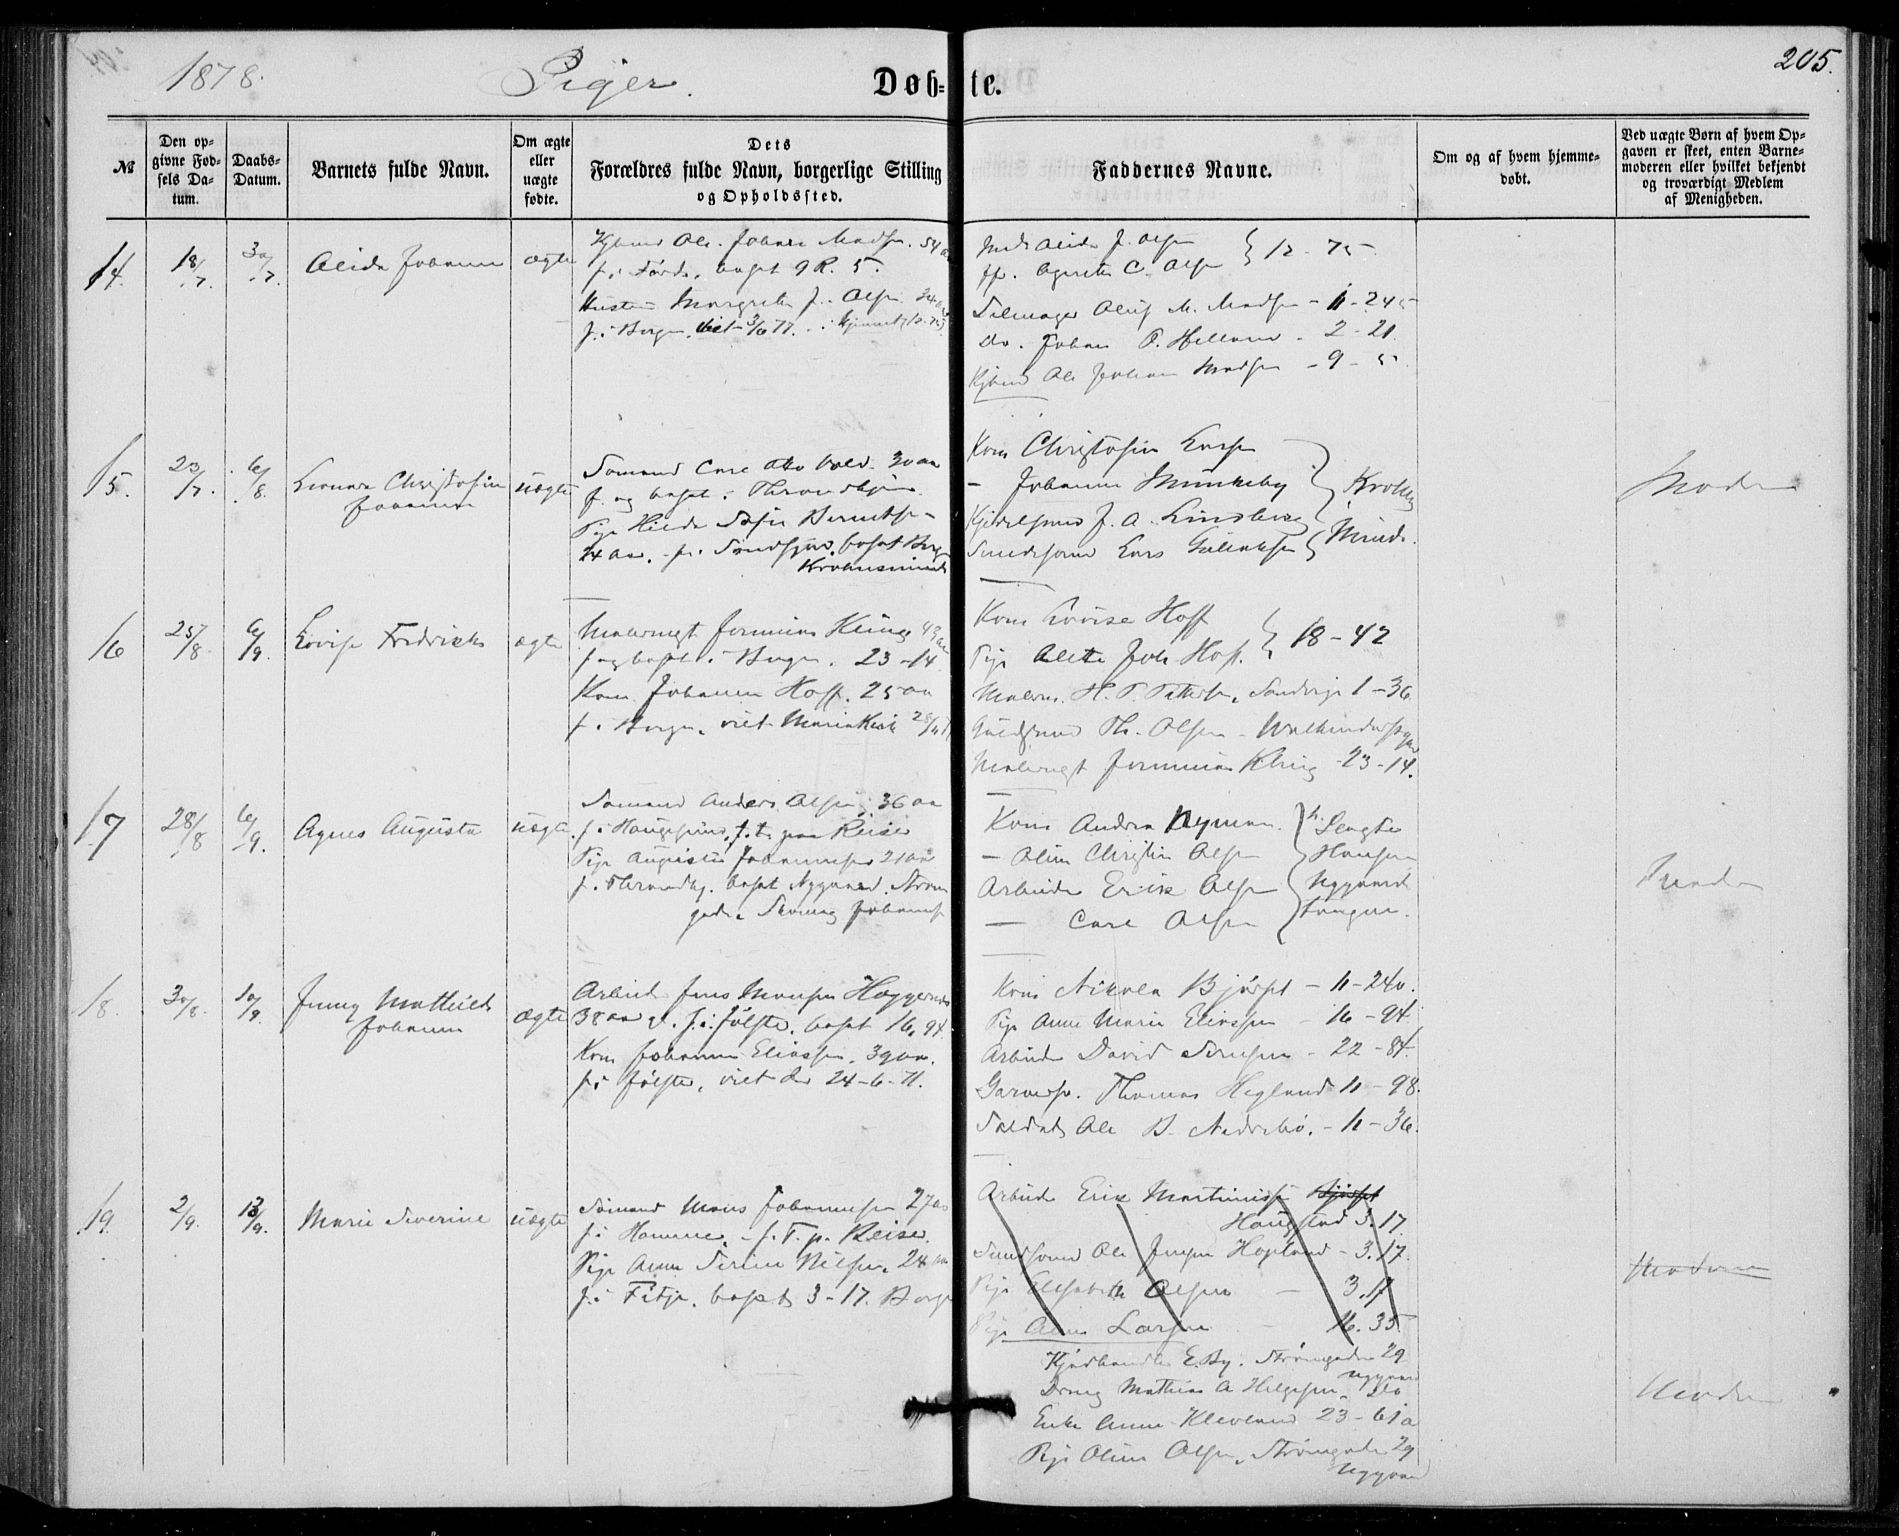 1878.
Piger.
Døb=te.
205.
№
Den op=
givne Fød=
sels Da=
tum.
Daabs=
Datum.
Barnets fulde Navn.
Om ægte
eller
uægte
fødte.
Dets
Forældres fulde Navn, borgerlige Stilling
og Opholdssted.
Faddernes Navne.
Om og af hvem hjemme=
døbt.
Ved uægte Børn af hvem Op=
gaven er skeet, enten Barne=
moderen eller hvilket bekjendt
og troværdigt Medlem
af Menigheden.
14.
18/7.
30/7.
Alida Johanne
ægte
Ole Johan Madsen. 54 aar
f. i Førde, bosat 9 R. 5.
Hustru Margrethe J. Olsen 34 aar
f. i Bergen, viet 3/6 77.
Alida J. Olsen
Agnete C. Olsen } 12-75
Seilmager Oluf M. Madsen - 11-245
do. Johan P. Helland - 2-21.
Ole Johan Madsen - 9-5.
15.
23/7.
6/8.
Christofine
Johanna
uægte
Sømand Carl Otto Vold. 30 aar
f. og bosat i Throndhjem.
Pige Hilda Sofie Berntsen
24 aar. f. i Søndfjord, bosat Bergen
Krohnsminde
Kone Christofine Larsen
- Johanne Munkeby
J. A. Lindberg
Lars
Krohns
Minde.
Moderen
16
25/8
6/9.
Lovise Fredrikke
ægte
Malersvgt Jeremias Kling 43 aar
f. og bosat i Bergen. 23-14
Kone Johanne Hoff. 25 aar
f. i Bergen. viet Mariakirk
Kone Lovise Hoff
Pige Alette Joh. Hoff. } 18-42
Malersv. H. T. Pettersen, Sandvige 1-36
Guldsmed Th. Olsen
Malersvgt Jeremias Kling - 23-14.
17
28/8
6/9.
Agnes Augusta
uægte
Sømand Anders Olsen, 36 aar
f. i Haugesund, f. t. paa Reise
Pige Augusta Johannesen 21 aar
f. i Throndhj. bosat Nygaard. Strøm
gade. Johannesen
Kone Andrea Nyman.
- Oline Christine Olsen
Arbeider Erik Olsen
- Carl Olsen
Hansen
Nygaard
Moderen
18.
30/8.
10/9.
Jenny Mathilde
Johanne
ægte
Arbeid. Jens Monsen
38 aar. f. i Jølster. bosat 16, 94.
Kone Johanne Eliassen. 39 aar.
f. i Jølster, viet der 24-6-71.
Kone Nikolea Bjørset - 11-240.
Pige Anne Marie Eliassen - 16-94
Arbeider David Jensen - 22-84.
Garversv. Thomas Hegland 11-98.
Soldat Ole B. Nedrebø. - 11-36.
19.
2/9.
13/9.
Marie Severine
uægte
Sømand Mons Johannesen 27 aar
f. i Hammer. - f. T. p. Reise.
Pige Anne Serine Nilsen. 24 aar
f. i Fitje. bosat 3-17. Bergen
Arbeider Erik Martinussen Bjørset
Haugstad 3.17.
Ole Jensen Hopland - 3.17.
Pige Elisabeth Olsen - 3.17
Pige Larsen 16. 35
Kjødhandler E. By. Strømgaden 29
Nygaard
Dreng Mathias A. Helgesen. do
Enke Anne Kleveland 23-61a
Pige Oline Olsen, Strømgaden 29
Nygaard
Moderen
Moderen